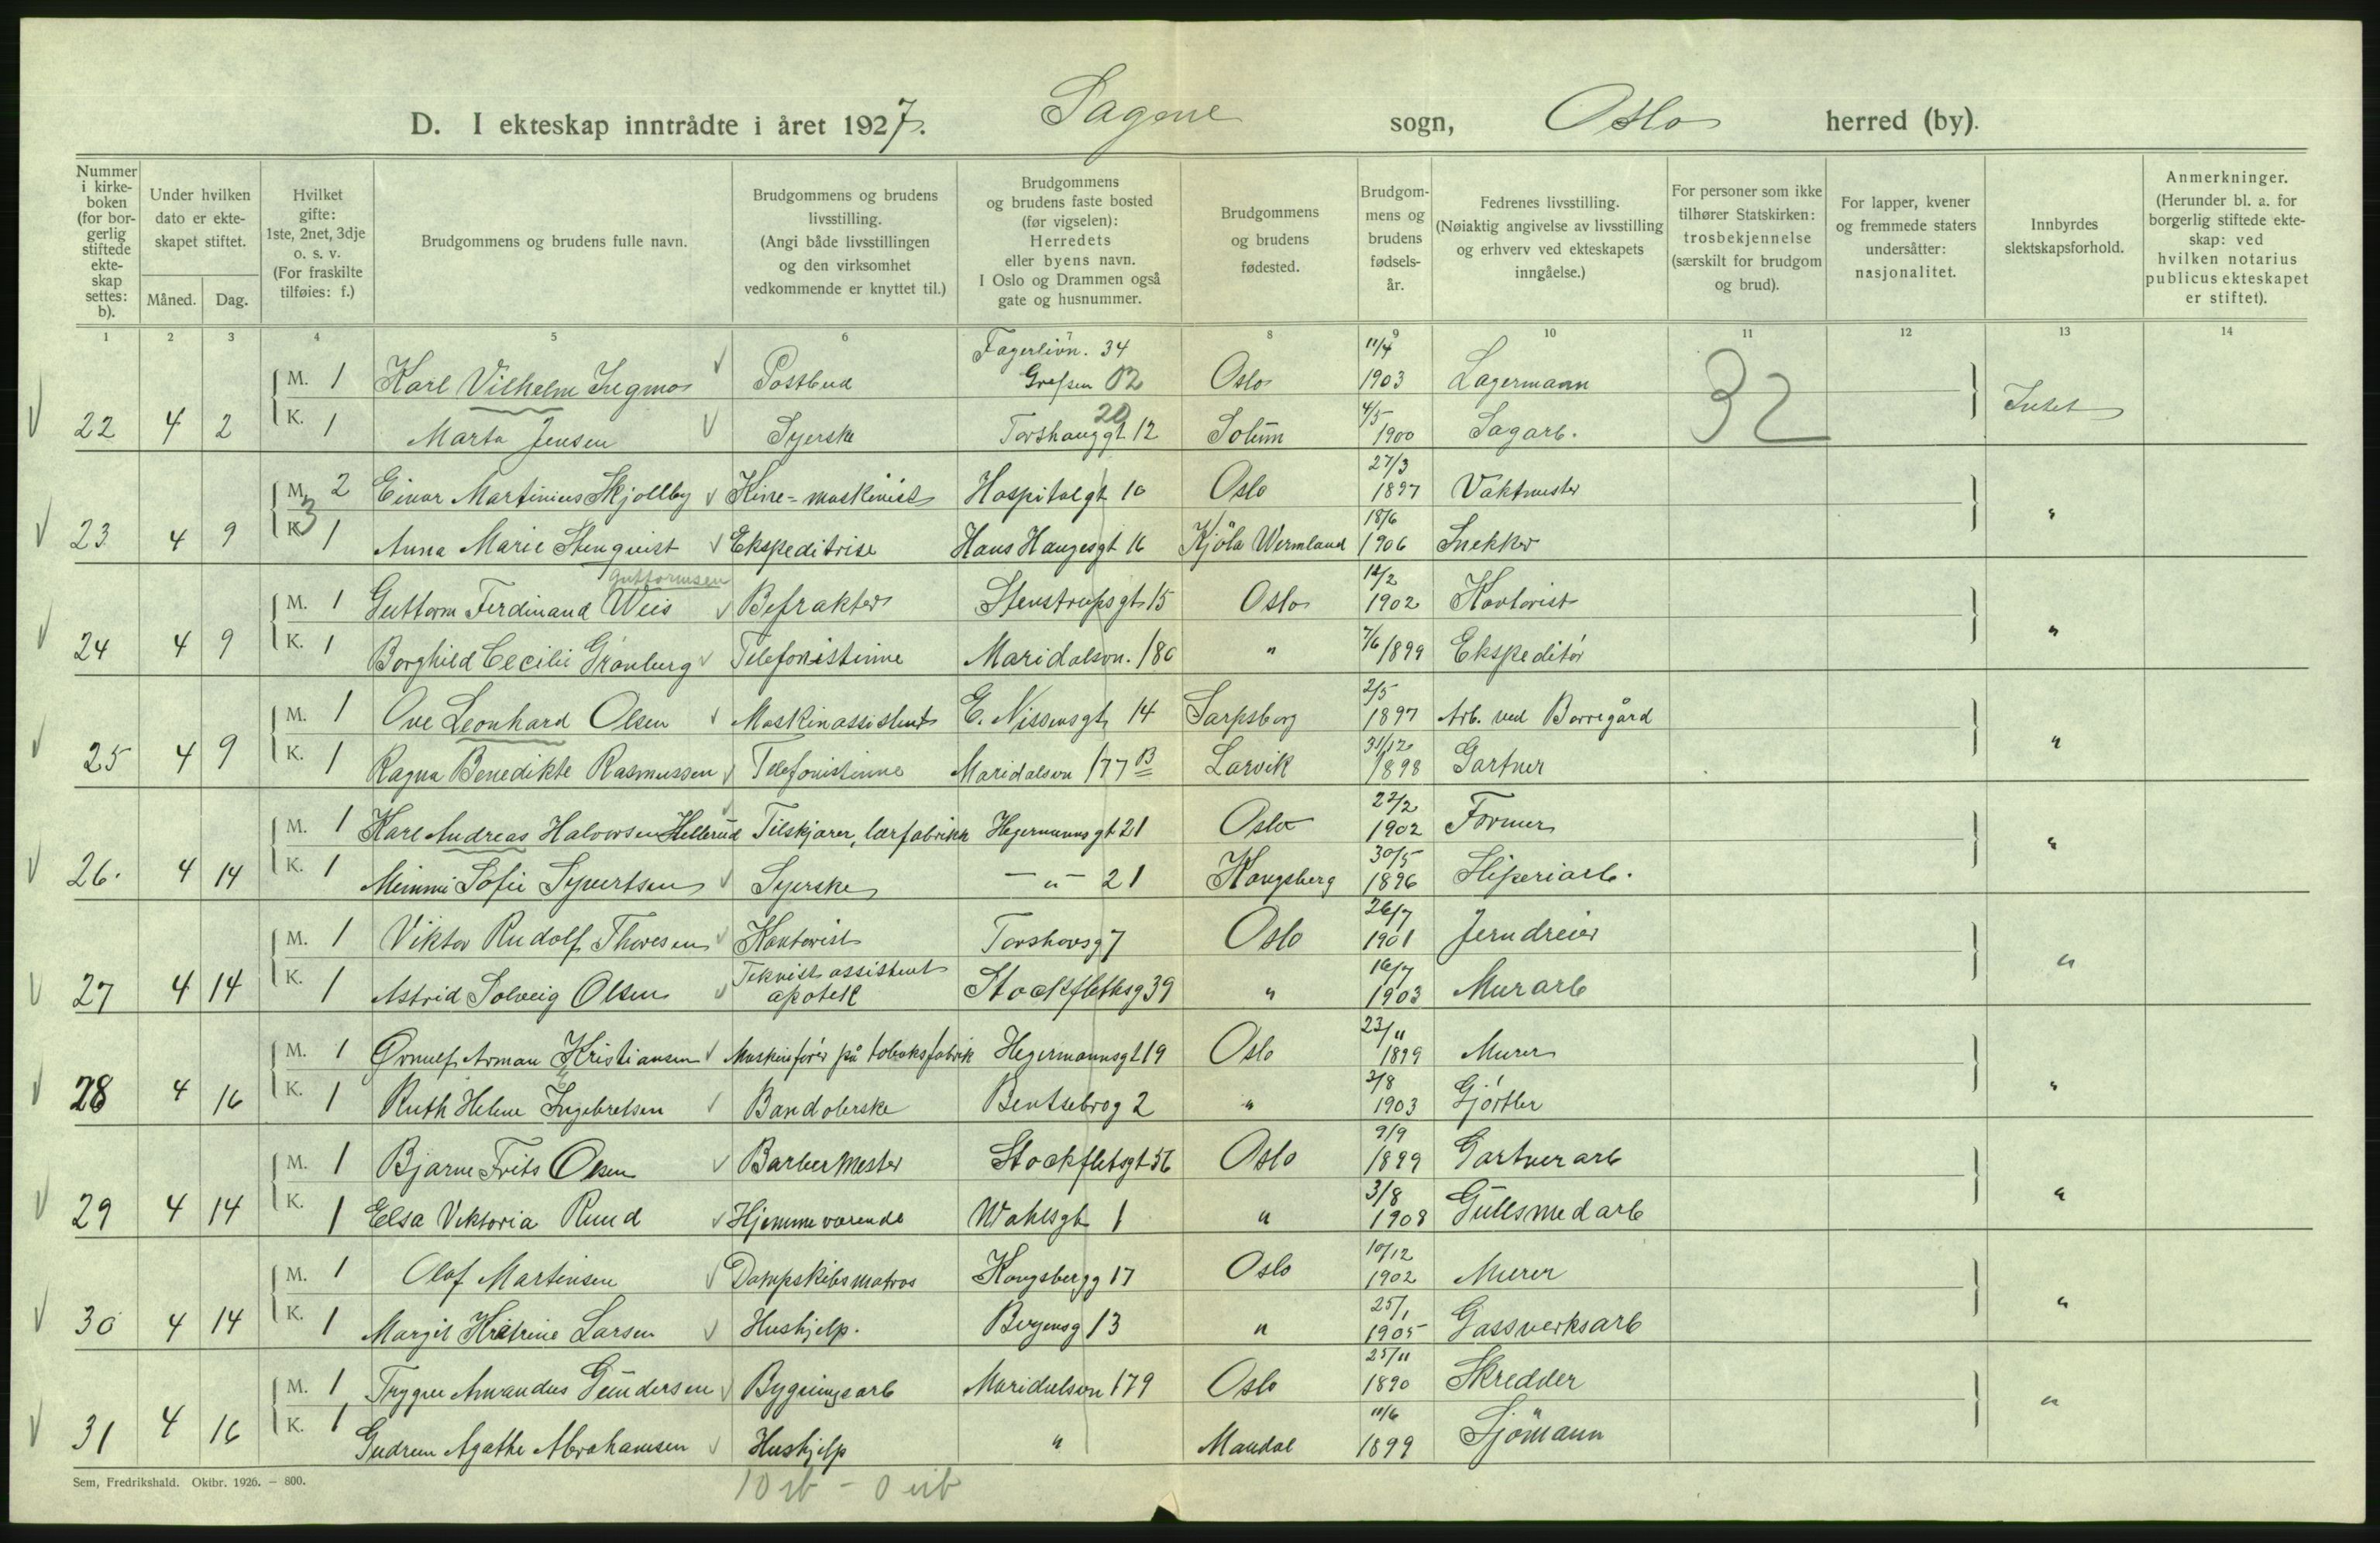 D. I ekteskap inntrådte i året 1927. Sagene sogn, Oslo herred (by).
Nummer i kirkeboken (for borgerlig stiftede ekteskap settes: b).
Under hvilken dato er ekteskapet stiftet.
Måned. Dag.
Hvilket gifte: 1ste, 2net, 3dje o. s. v. (For fraskilte tilføies: f.)
Brudgommens og brudens fulle navn.
Brudgommens og brudens livsstilling. (Angi både livsstillingen og den virksomhet vedkommende er knyttet til.)
Brudgommens og brudens faste bosted (før vigselen): Herredets eller byens navn. I Oslo og Drammen også gate og husnummer.
Brudgommens og brudens fødested.
Brudgommens og brudens fødselsår.
Fedrenes livsstilling. (Nøiaktig angivelse av livsstilling og erhverv ved ekteskapets inngåelse.)
For personer som ikke tilhører Statskirken: trosbekjennelse (særskilt for brudgom og brud).
For lapper, kvener og fremmede staters undersåtter: nasjonalitet.
Innbyrdes slektskapsforhold.
Anmerkninger. (Herunder bl. a. for borgerlig stiftede ekteskap: ved hvilken notarius publicus ekteskapet er stiftet).
1 2 3 4 5 6 7 8 9 10 11 12 13 14
Fagerlivn. 34 11/4
M. 1 Karl Vilhelm Ingmo Postbud Grefsen 02 Oslo 1903 Lagermann 32
22 4 2 K. 1 Marta Jensen Syerske Torshauggt 12 20 Solum 4/5 1900 Sagarb. Intet
M. 2 Einar Martinius Skjollby Kino-maskinist Hospitalgt 10 Oslo 27/3 1897 Vaktmester
23 4 9 K. 1 3 Anna Marie Stenquist Ekspeditrise Hans Haugesgt 16 Kjöla Wermland 18/6 1906 Snekker "
Guttormsen
M. 1 Guttorm Ferdinand Weis Befrakter Stenstrupsgt 15 Oslo 12/2 1902 Kontorist
24 4 9 K. 1 Borghild Cecilie Grönberg Telefonistinne Maridalsvn. 180 " 7/6 1899 Ekspeditör "
M. 1 Ove Leonhard Olsen Maskinassistent E. Nissensgt 14 Sarpsborg 2/5 1897 Arb. ved Borregård
25 4 9 K. 1 Ragna Benedikte Rasmussen Telefonistinne Maridalsvn 177 B Larvik 31/12 1898 Gartner "
M. 1 Karl Andreas Halvorsen Hellerud Tilskjærer, lærfabrikk Hegermannsgt 21 Oslo 22/2 1902 Former
26. 4 14 K. 1 Mimmi Sofie Syvertsen Syerske - " - 21 Kongsberg 30/5 1896 Sliperiarb. "
M. 1 Viktor Rudolf Thoresen Kontorist Torshovsg 7 Oslo 26/7 1901 Jerndreier
27 4 14 K. 1 Astrid Solveig Olsen Teknisk assistent apotek Stockflethsg 39 " 16/7 1903 Murarb "
M. 1 Ørnulf Arman Kristiansen Maskinförer på tobaksfabrik Hegermannsgt 19 Oslo 23/11 1899 Murer
28 4 16 K. 1 Ruth Helene Ingebretsen Banderolerske Bentsebrog 2 " 2/8 1903 Gjörtler "
M. 1 Bjarne Frits Olsen Barbermester Stockfletsgt 56 Oslo 9/9 1899 Gartnerarb
29 4 14 K. 1 Elsa Viktoria Ruud Hjemmeværende Wahlsgt 1 " 3/8 1908 Gullsmedarb "
M. 1 Olaf Martinsen Dampskibsmatros Kongsbergg 17 Oslo 10/12 1902 Murer
30 4 14 K. 1 Margit Katrine Larsen Hushjelp. Bergensg 13 " 25/1 1905 Gassverksarb "
M. 1 Trygve Amandus Gundersen Bygningsarb Maridalsvn 179 Oslo 25/11 1890 Skredder
31 4 16 K. 1 Gudrun Agathe Abrahamsen Hushjelp " Mandal 11/6 1899 Sjömann "
Sem, Fredrikshald. Oktbr. 1926. — 800.
10 rb - 0 uib